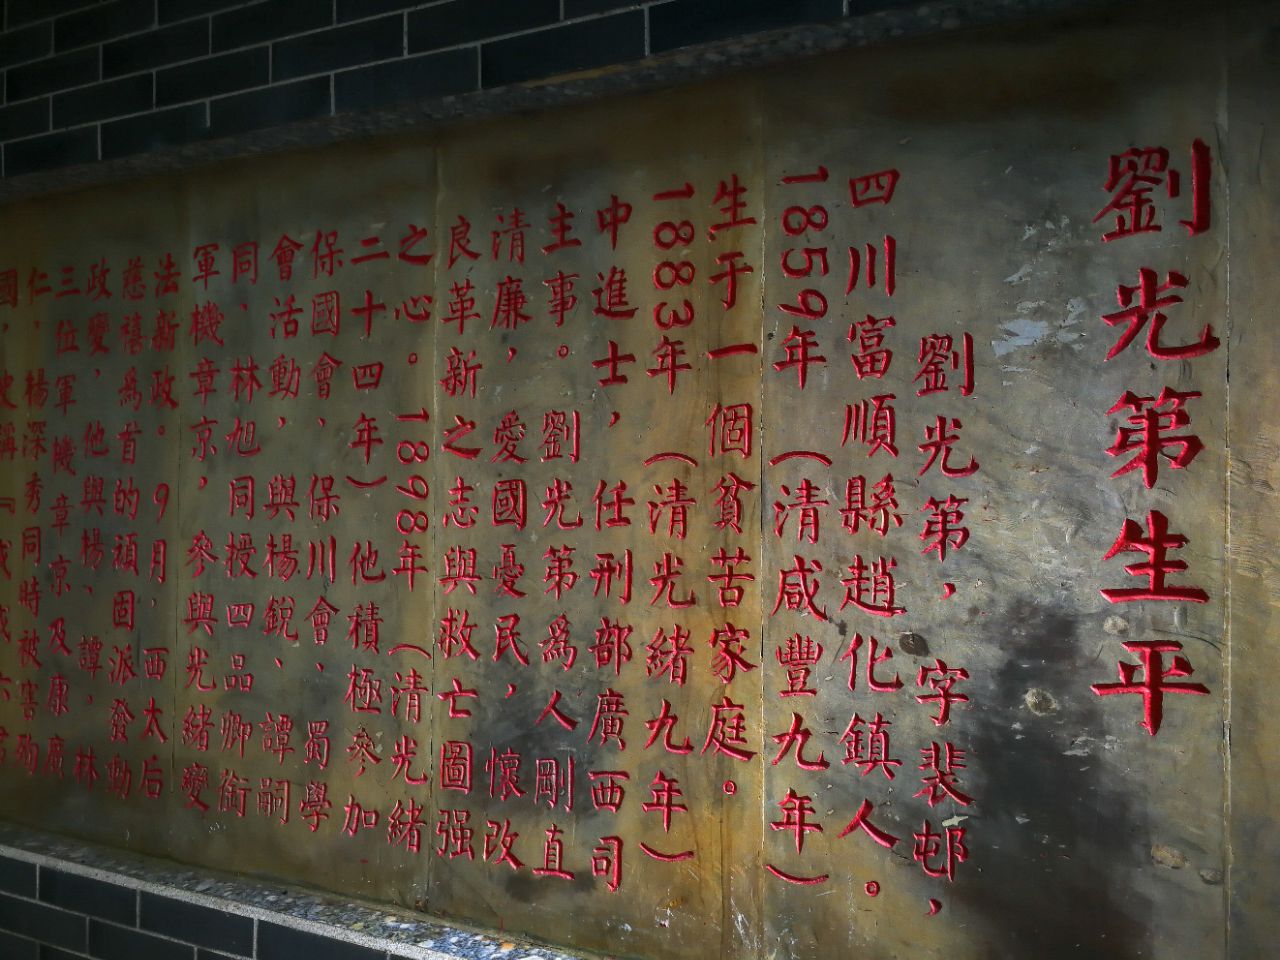 劉光第生平
劉光第，字裴邨，
四川富順縣趙化鎮人。
1859年（清咸豐九年）
生于一個貧苦家庭。
1883年（清光緒九年）
中進士，任刑部廣西司
主事。劉光第為人剛直
清廉，愛國憂民，懷改
良革新之志與救亡圖强
之心。1898年（清光緒
二十四年）他積極參加
保國會、保川會、蜀學
會活動，與楊銳、譚嗣
同、林旭同授四品卿銜
軍機章京，參與光緒變
法新政。9月，西太后
慈禧為首的頑固派發動
政變，他與楊、譚、林
三位軍機章京及康廣
仁、楊深秀同時被害殉
國，史稱『戊戌六君